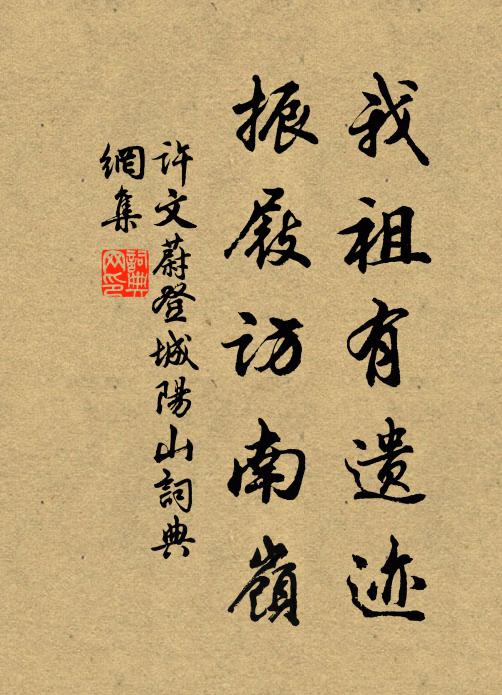 我祖有遗迹
振屐访南嶺
许文蔚登城陽山詞典
網集
詞典网印